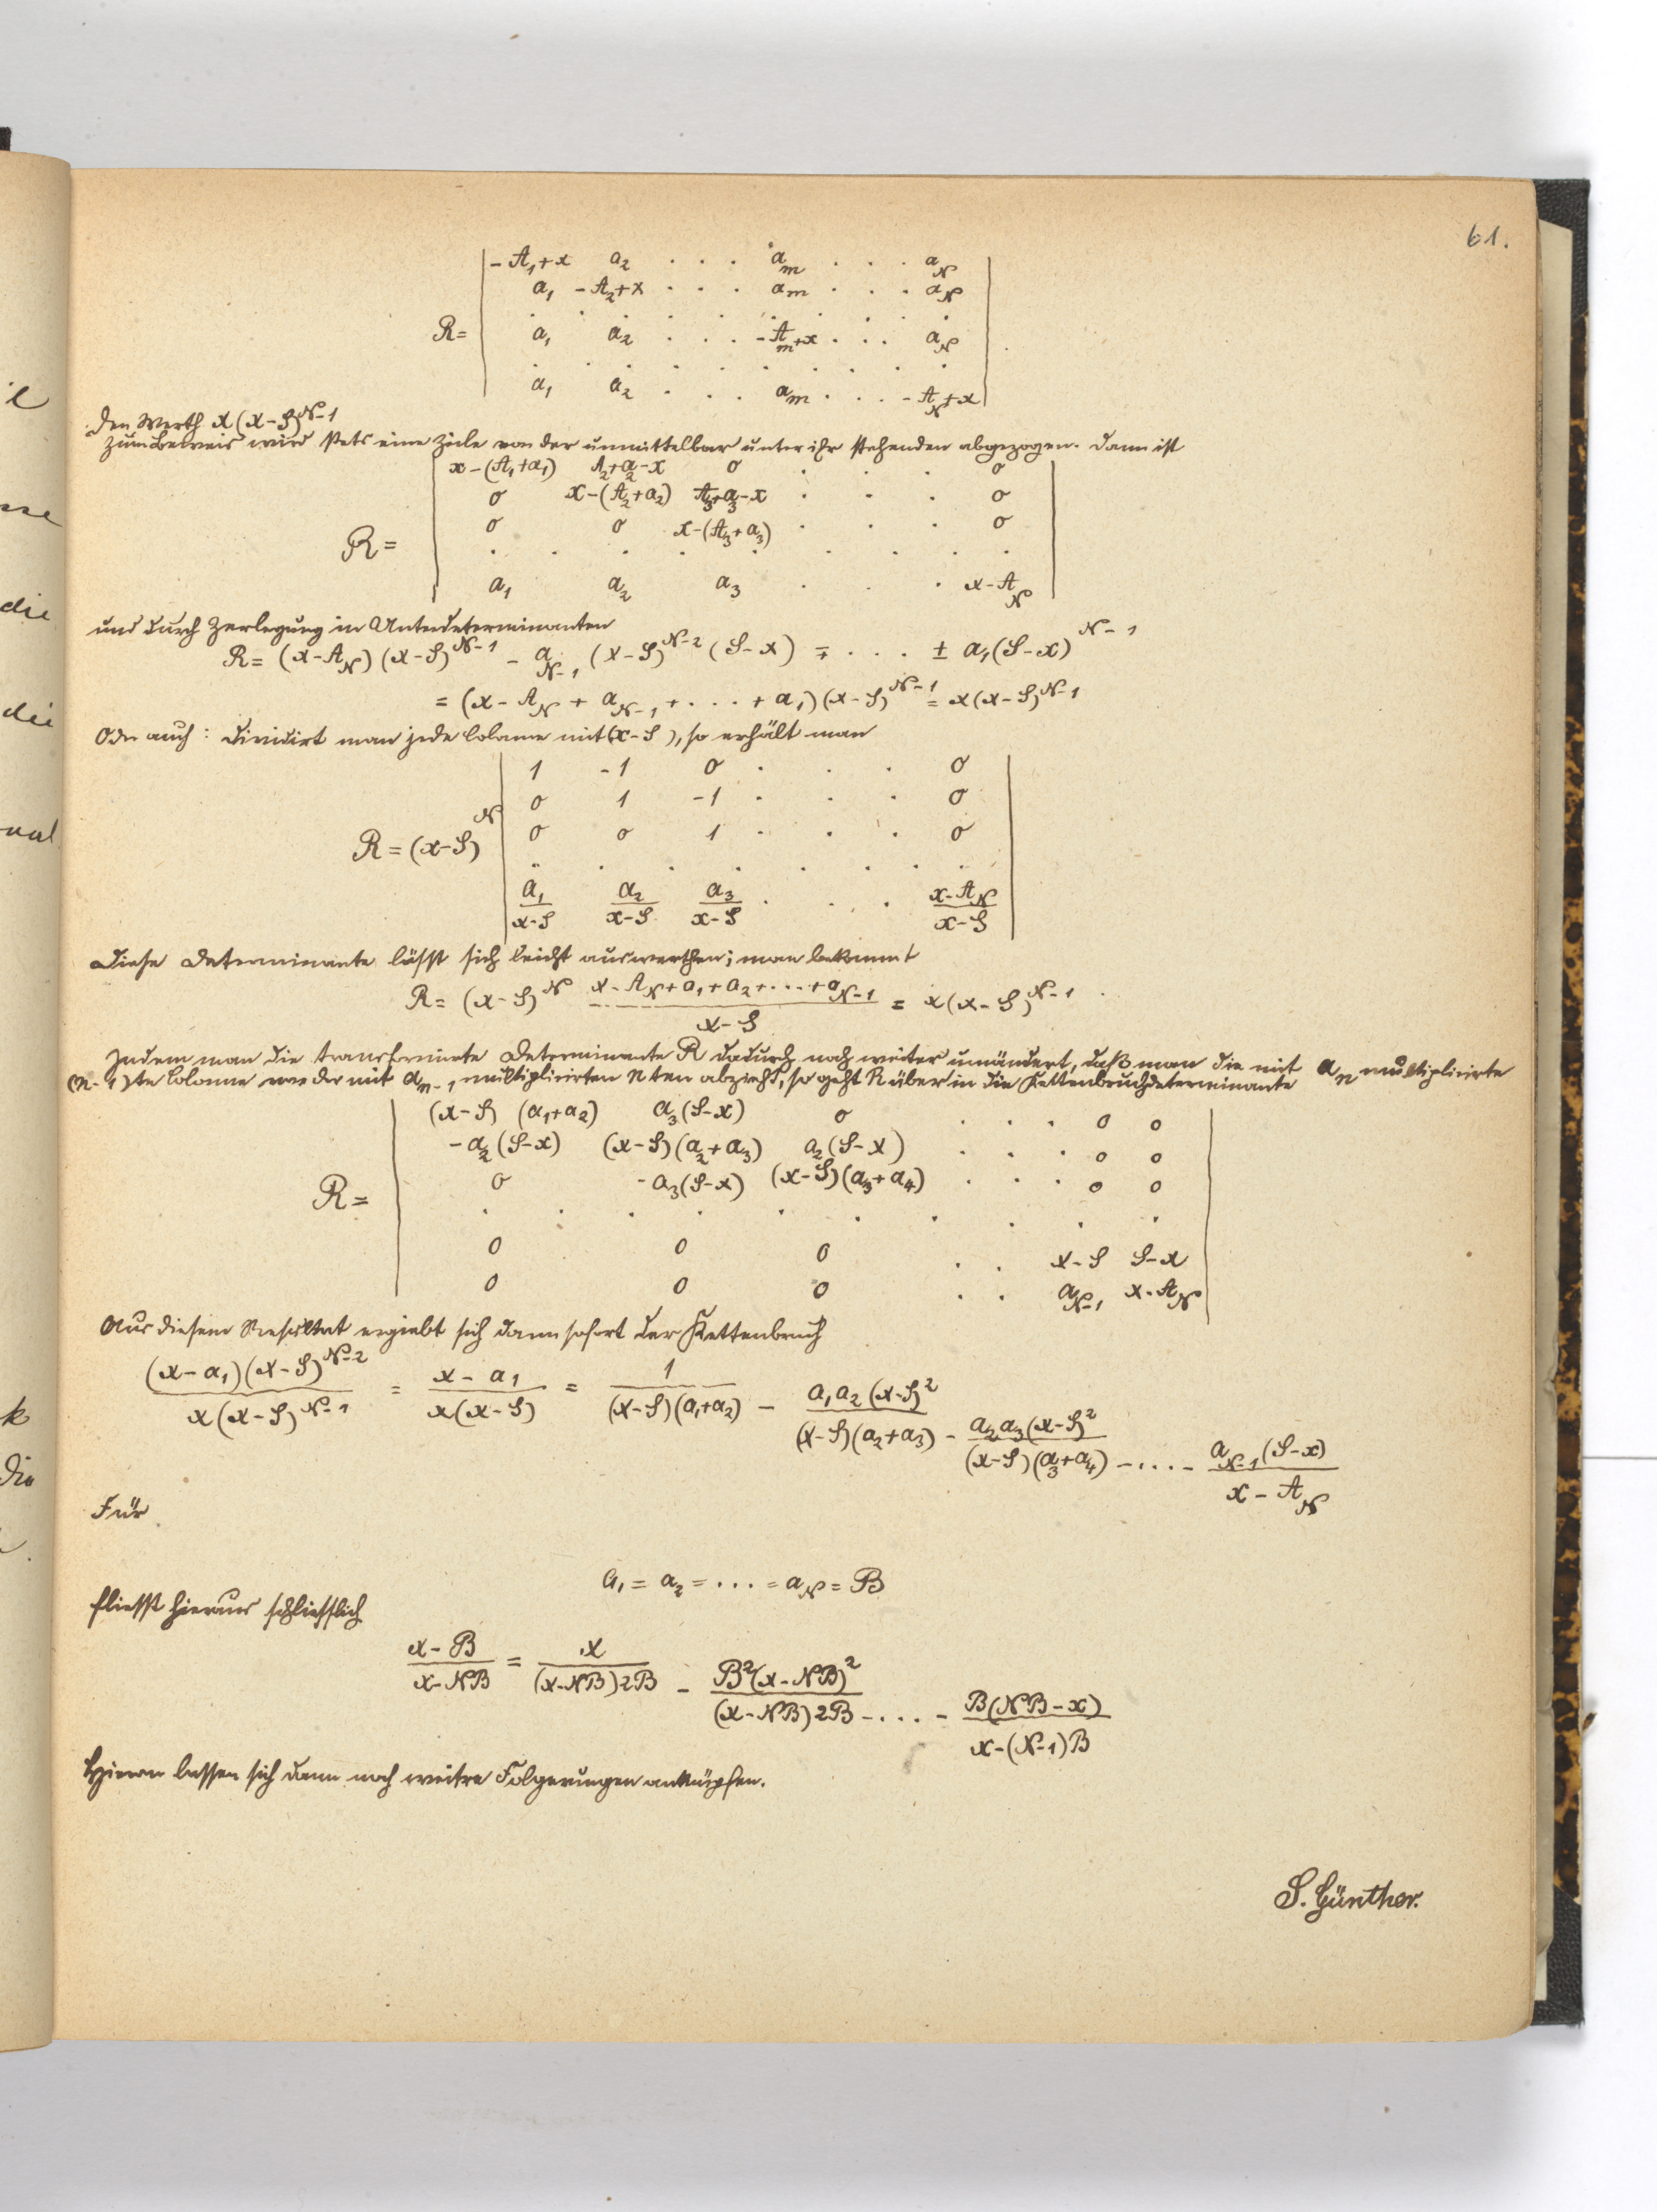 61.
-A₁+x a₂ . . . aₘ . . . a_N
a₁ -A₂+x . . . aₘ . . . a_N
. . . . . . . .
R= a₁ a₂ . . . -Aₘ+x . . . a_N
. . . . . . . .
a₁ a₂ . . . aₘ . . . -A_N+x
den Werth x(x-S)^{N-1}
Zum Beweis wird stets eine Zeile von der unmittelbar unter ihr stehenden abgezogen. Dann ist
x-(A₁+a₁) A₂+a₂-x 0 . . . 0
0 x-(A₂+a₂) A₃+a₃-x . . . 0
0 0 x-(A₃+a₃) . . . 0
R=
. . . . . . . . .
a₁ a₂ a₃ . . . x-A_N
und durch Zerlegung in Unterdeterminanten
R= (x-A_N)(x-S)^{N-1} - a_{N-1}(x-S)^{N-2}(S-x) ∓ . . . ± a₁(S-x)^{N-1}
= (x-A_N + a_{N-1} + . . . + a₁)(x-S)^{N-1} = x(x-S)^{N-1}
Oder auch: dividirt man jede Colonne mit (x-S), so erhält man
1 -1 0 . . . 0
0 1 -1 . . . 0
R=(x-S)^N 0 0 1 . . . 0
. . . . . . . .
a₁/(x-S) a₂/(x-S) a₃/(x-S) . . . (x-A_N)/(x-S)
Diese Determinante lässt sich leicht auswerthen; man bekommt
R= (x-S)^N (x-A_N+a₁+a₂+...+a_{N-1})/(x-S) = x(x-S)^{N-1}.
Indem man die transformirte Determinante R dadurch noch weiter umändert, daß man die mit aₙ multiplicirte
(n-1)te Colonne von der mit a_{n-1} multiplicirten nten abzieht, so geht R über in die Kettenbruchdeterminante
(x-S)(a₁+a₂) a₃(S-x) 0 . . . 0 0
-a₂(S-x) (x-S)(a₂+a₃) a₂(S-x) . . . 0 0
R= 0 -a₃(S-x) (x-S)(a₃+a₄) . . . 0 0
. . . . . . . . . .
0 0 0 . . x-S S-x
0 0 0 . . a_{N-1} x-A_N
Aus diesem Resultat ergiebt sich dann sofort der Kettenbruch
(x-a₁)(x-S)^{N-2}/x(x-S)^{N-1} = (x-a₁)/x(x-S) = 1/(x-S)(a₁+a₂) - a₁a₂(x-S)²/(x-S)(a₂+a₃) - a₂a₃(x-S)²/(x-S)(a₃+a₄) - .... - a_{N-1}(S-x)/(x-A_N)
Für
a₁ = a₂ = ... = a_N = B
fliesst hieraus schliesslich
(x-B)/(x-NB) = x/(x-NB)2B - B²(x-NB)²/(x-NB)2B - .... - B(NB-x)/x-(N-1)B
Hieran lassen sich dann noch weitre Folgerungen anknüpfen.
S. Günther.